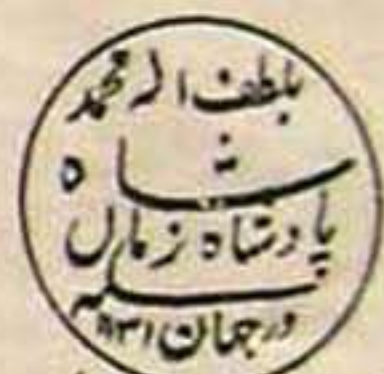 بلطف اله محمد
شاه
پادشاه زمان
سنه
در جهان ۱۱۳۱